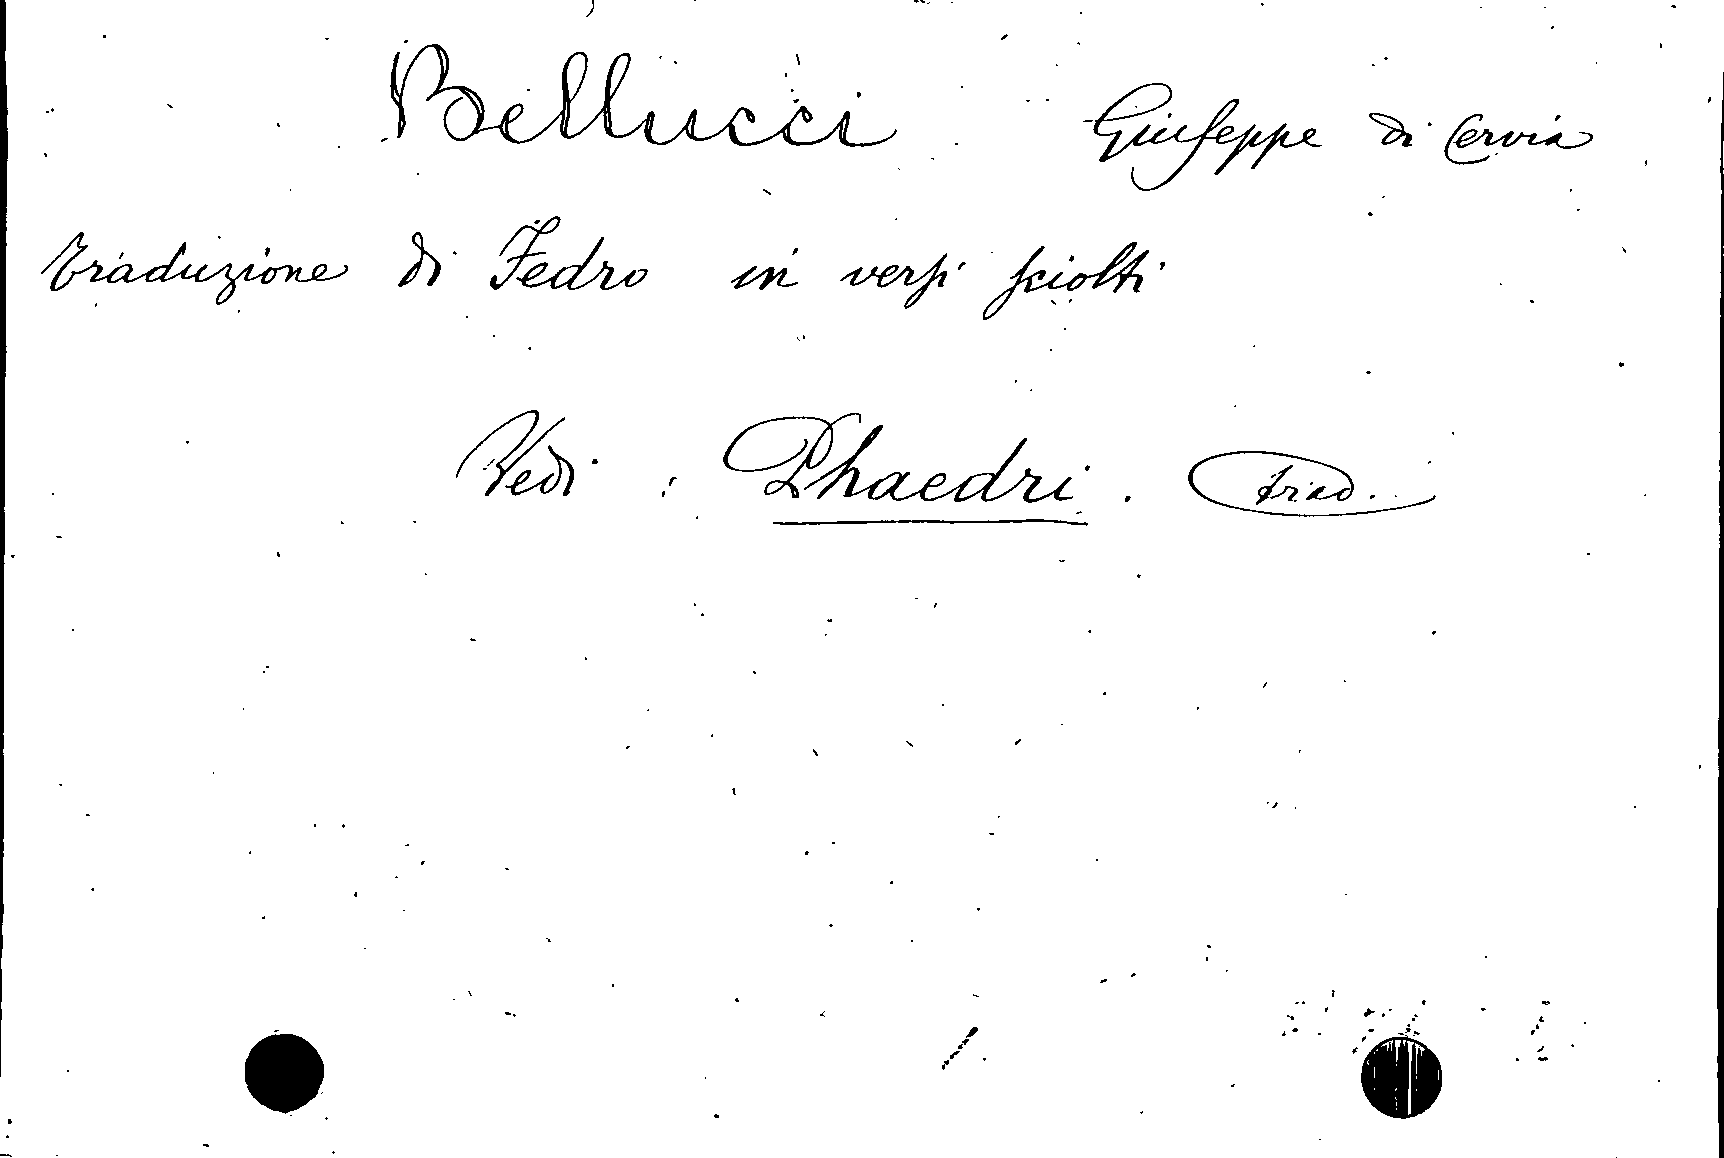 Bellucci Giuseppe di Cervia
traduzione di Fedro in versi sciolti
Vedi : Phaedri . trad.